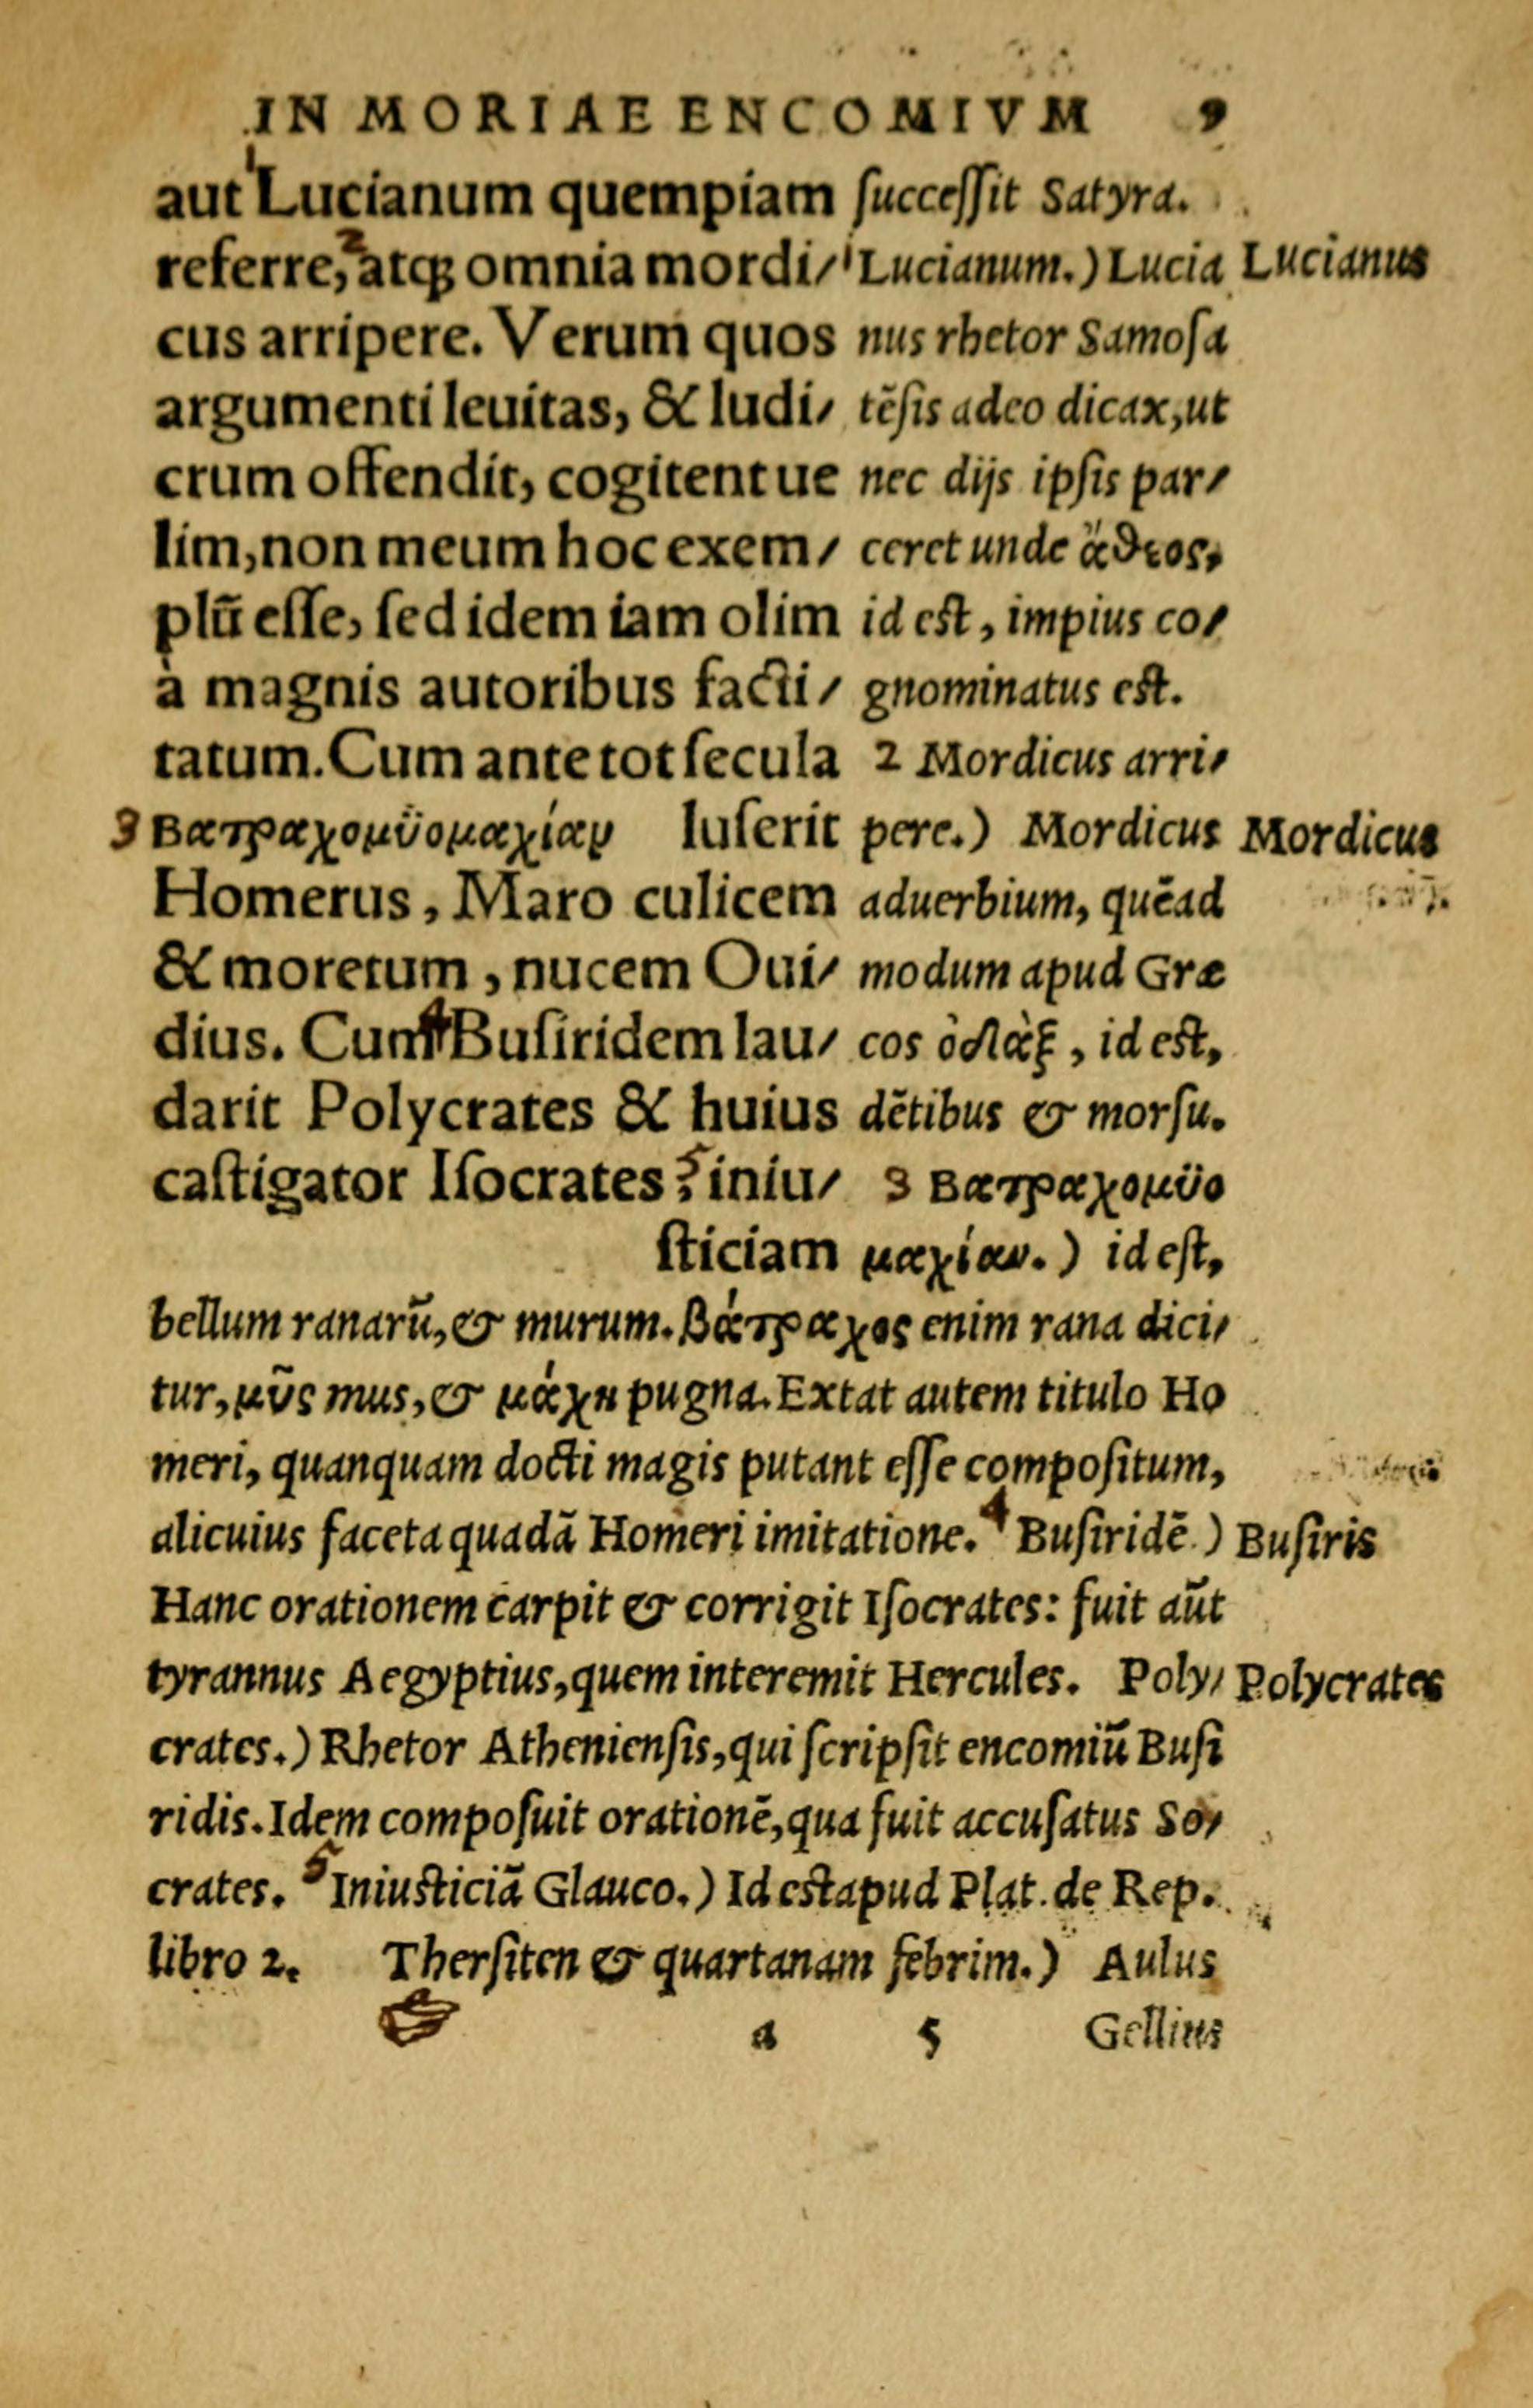 IN MORIAE ENCOMIVM 9
aut Lucianum quempiam
referre, atq; omnia mordi/
cus arripere. Verum quos
argumenti leuitas, & ludi/
crum offendit, cogitent ue
lim, non meum hoc exem/
plū esse, sed idem iam olim
à magnis autoribus facti/
tatum. Cum ante tot secula
3 Βατραχομϋομαχίαν luserit
Homerus, Maro culicem
& moretum, nucem Oui/
dius. Cum 4 Busiridem lau/
darit Polycrates & huius
castigator Isocrates 5 iniu/
sticiam
successit Satyra.
1 Lucianum.) Lucia
nus rhetor Samosa
tēsis adeo dicax, ut
nec dijs ipsis par/
ceret unde ἄθεος,
id est, impius co/
gnominatus est.
2 Mordicus arri/
pere.) Mordicus
aduerbium, quēad
modum apud Græ
cos ὀδὰξ, id est,
dētibus & morsu.
3 Βατραχομϋο
μαχίαν.) id est,
bellum ranarū, & murum. βάτραχος enim rana dici/
tur, μῦς mus, & μάχη pugna. Extat autem titulo Ho
meri, quanquam docti magis putant esse compositum,
alicuius faceta quadā Homeri imitatione. 4 Busiridē.)
Hanc orationem carpit & corrigit Isocrates: fuit aūt
tyrannus Aegyptius, quem interemit Hercules. Poly/
crates.) Rhetor Atheniensis, qui scripsit encomiū Busi
ridis. Idem composuit orationē, qua fuit accusatus So/
crates. 5 Iniusticiā Glauco.) Id est apud Plat. de Rep.
libro 2. Thersiten & quartanam febrim.) Aulus
a 5 Gellius
Lucianus
Mordicus
Busiris
Polycrates